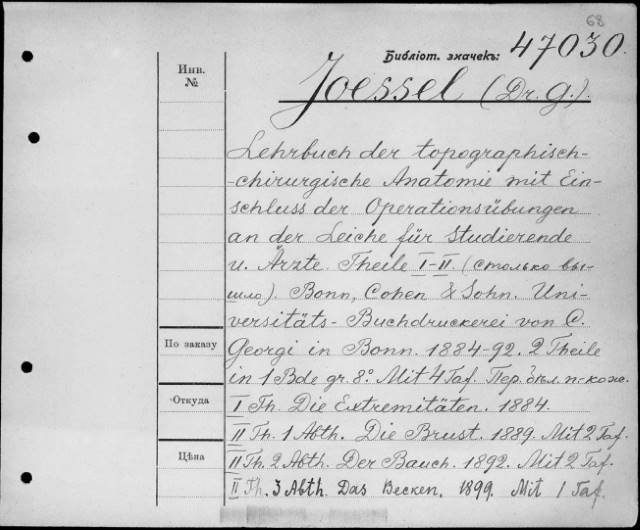 68
Библіот. значекъ: 47030.
Инв.
№
Joessel (Dr. G.).
Lehrbuch der topographisch-
-chirurgische Anatomie mit Ein-
schluss der Operationsübungen
an der Leiche für Studierende
u. Ärzte. Theile I-II. (столько вы-
шло). Bonn, Cohen & Sohn. Uni-
versitäts-Buchdruckerei von C.
По заказу
Georgi in Bonn. 1884-92. 2 Theile
in 1 Bde gr. 8º. Mit 4 Taf. Пер. п.-кож.
Откуда
I Th. Die Extremitäten. 1884.
II Th. 1 Abth. Die Brust. 1889. Mit 2 Taf.
Цѣна
II Th. 2 Abth. Der Bauch. 1892. Mit 2 Taf.
II Th. 3 Abth. Das Becken. 1899. Mit 1 Taf.